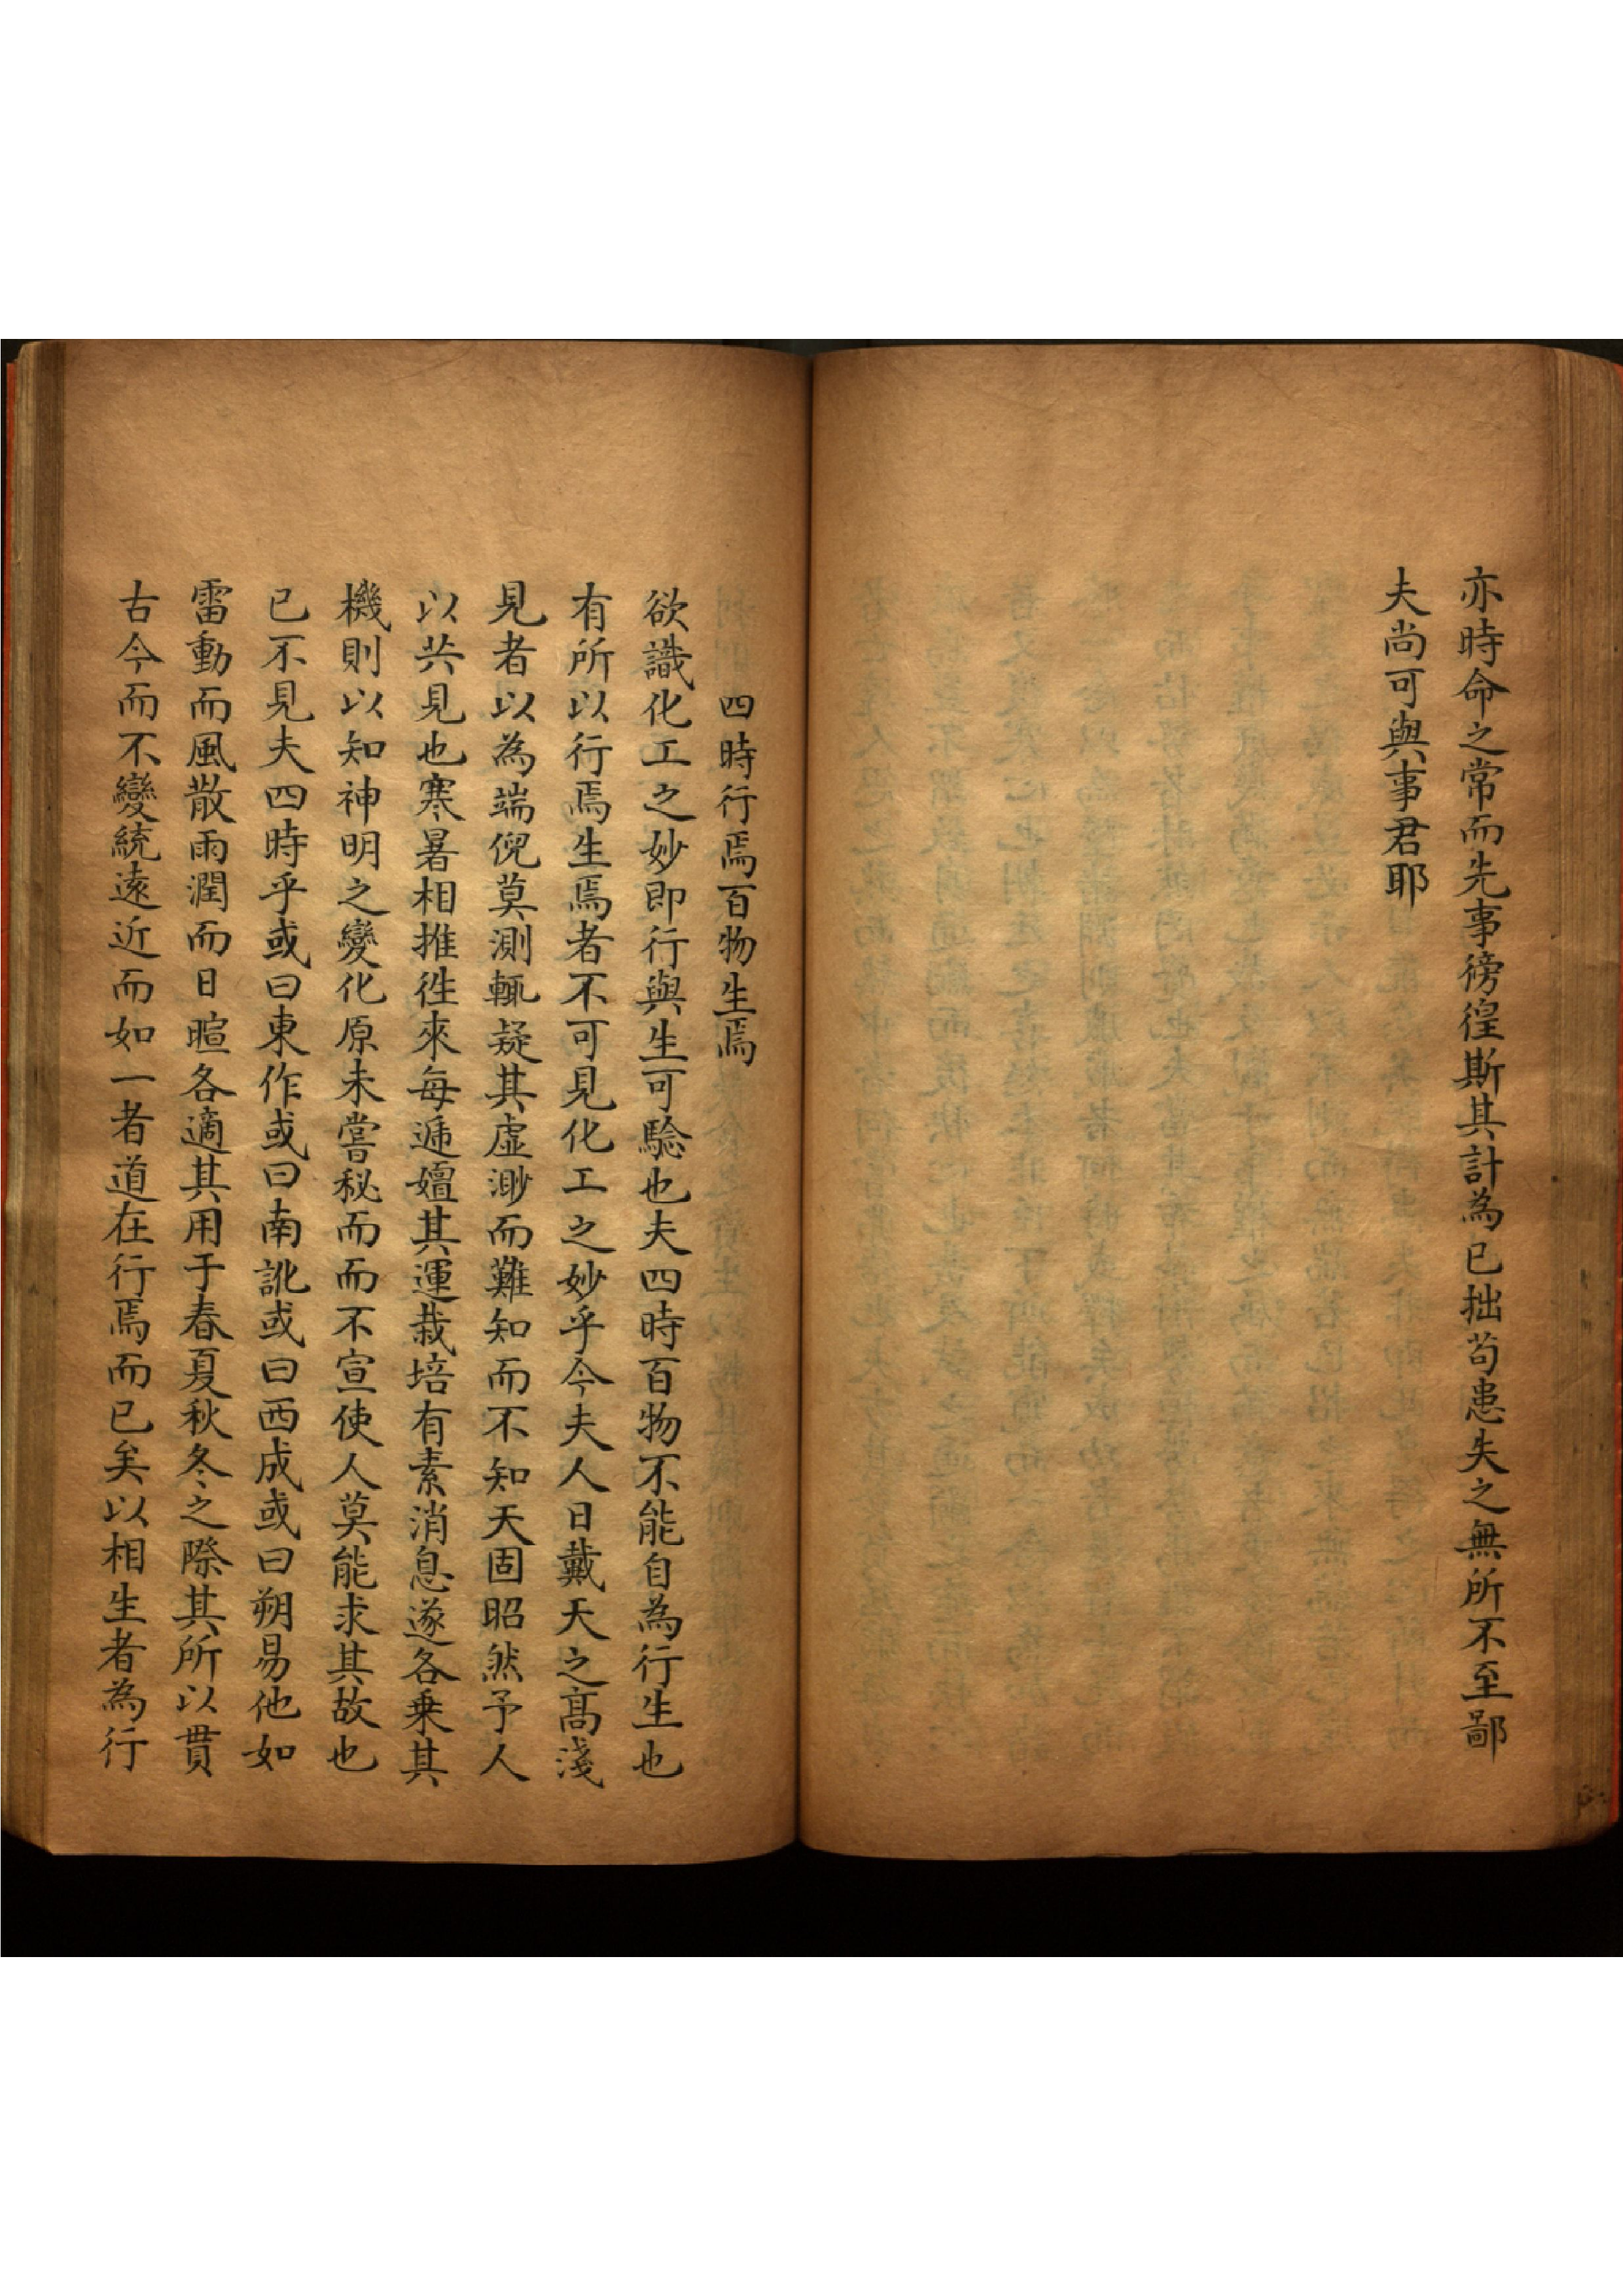 亦時命之常而先事徬徨斯其計為已拙苟患失之無所不至鄙
夫尚可與事君耶
四時行焉百物生焉
欲識化工之妙即行與生可驗也夫四時百物不能自為行生也
有所以行焉生焉者不可見化工之妙乎今夫人日戴天之高淺
見者以為端倪莫測輒疑其虛渺而難知而不知天固昭然予人
以共見也寒暑相推徃來每遞嬗其運栽培有素消息遂各乗其
機則以知神明之變化原未嘗秘而而不宣使人莫能求其故也
已不見夫四時乎或曰東作或曰南訛或曰西成或曰朔易他如
雷動而風散雨潤而日暄各適其用于春夏秋冬之際其所以貫
古今而不變統遠近而如一者道在行焉而已矣以相生者為行